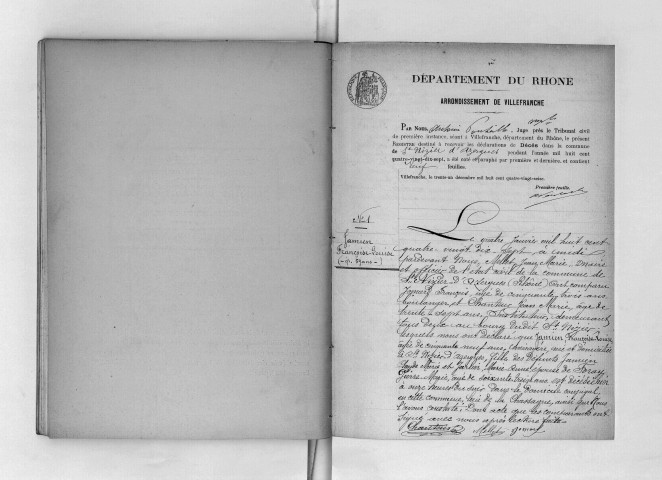 DÉPARTEMENT DU RHONE
ARRONDISSEMENT DE VILLEFRANCHE
PAR NOUS, Juge près le Tribunal civil
de première instance, séant à Villefranche, département du Rhône, le présent
REGISTRE destiné à recevoir les déclarations de Décès dans la commune
de St Nizier d'Azergues pendant l'année mil huit cent
quatre-vingt-dix-sept, a été coté et paraphé par première et dernière, et contient
neuf feuilles.
Villefranche, le trente-un décembre mil huit cent quatre-vingt-seize.
Première feuille.
No 1
Jamien
Françoise Louise
Le quatre Janvier mil huit cent
quatre-vingt dix sept à midi
pardevant Nous, Jean Marie, maire
et officier de l'état civil de la commune de
St Nizier d'Azergues (Rhône) sont comparu
François, âgé de cinquante trois ans
boulanger et Jean Marie âgé de
trente sept ans, Instituteur, demeurant
tous deux au bourg dudit St Nizier,
lesquels nous ont déclaré que Jamien Françoise Louise
âgée de cinquante neuf ans, née et domiciliée
à St Nizier d'Azergues, fille des défunts Jamien
et Marie Anne, épouse de
Pierre Marie, âgé de soixante ans est décédée hier
à onze heures du soir dans le domicile conjugal,
en cette commune, de la Chassagne, ainsi que Nous
l'avons constaté. Dont acte que les comparants ont
signé avec nous après lecture faite.